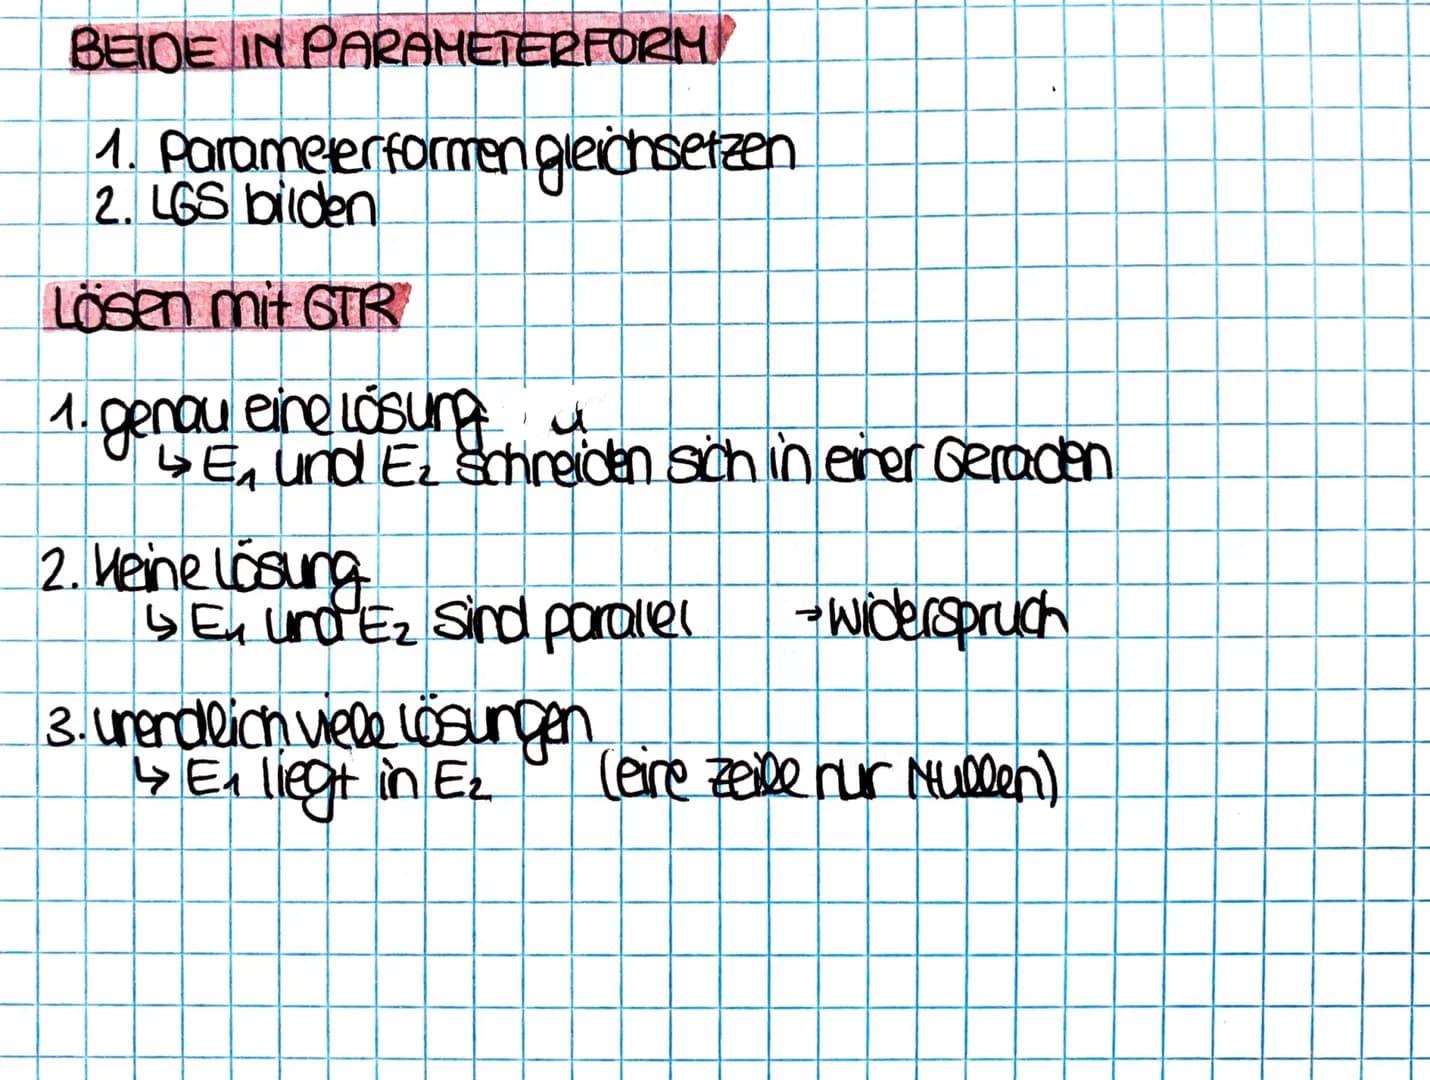 BEIDE IN PARAMETERFORM
1. Parameterformen gleichsetzen
2. LGS bilden
Lösen mit GTR
1. genau eine Lösung
↳ E₁ und E₂ schneiden sich in einer Geraden
2. Keine Lösung
↳ E₁ und E₂ sind parallel → Widerspruch
3. unendlich viele Lösungen
↳ E₁ liegt in E₂ (eine Zeile nur Nullen)